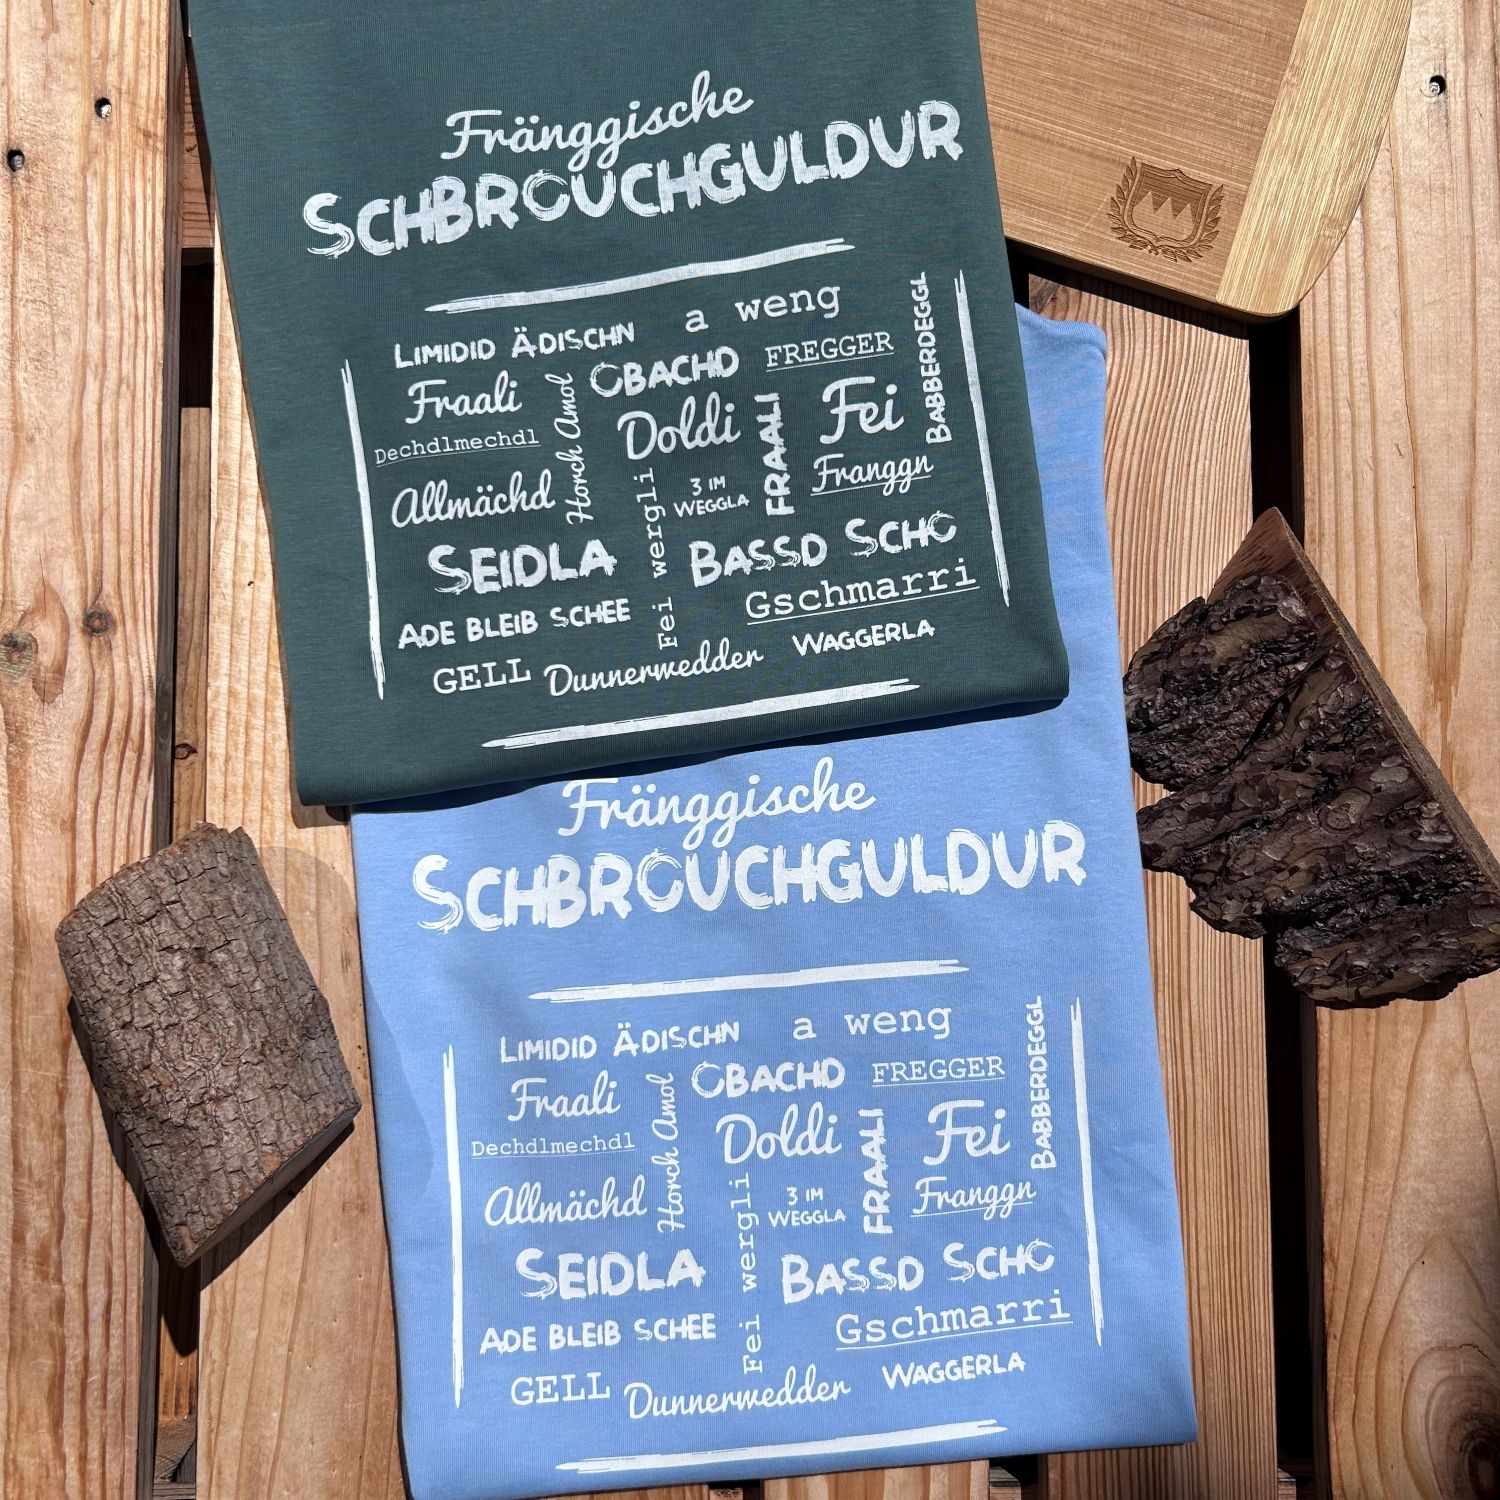 Fränggische
SCHBROUCHGULDUR
LIMIDID ÄDISCHN
a weng
Fraali
Horch Amol
OBACHD
FREGGER
BABBERDEGGL
Dechdlmechdl
Doldi
FRAALI
Fei
Allmächd
Fei wergli
3 IM
WEGGLA
Franggn
SEIDLA
BASSD SCHO
ADE BLEIB SCHEE
Gschmarri
GELL
Dunnerwedder
WAGGERLA
Fränggische
SCHBROUCHGULDUR
LIMIDID ÄDISCHN
a weng
Fraali
Horch Amol
OBACHD
FREGGER
BABBERDEGGL
Dechdlmechdl
Doldi
FRAALI
Fei
Allmächd
Fei wergli
3 IM
WEGGLA
Franggn
SEIDLA
BASSD SCHO
ADE BLEIB SCHEE
Gschmarri
GELL
Dunnerwedder
WAGGERLA